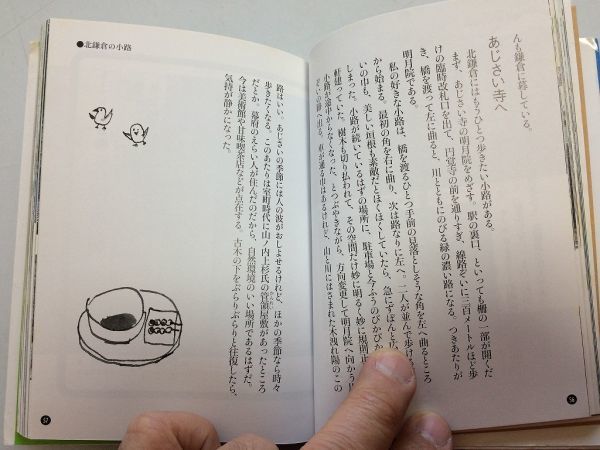 んも鎌倉に暮している。
あじさい寺へ
北鎌倉にはもうひとつ歩きたい小路がある。
まず、あじさい寺の明月院をめざす。駅の裏口、といっても柵の一部が開くだ
けの臨時改札口を出て、円覚寺の前を通りすぎ、線路ぞいに三百メートルほど歩
き、橋を渡って左に曲ると、川とともにのびる緑の濃い路になる。つきあたりが
明月院である。
私の好きな小路は、橋を渡るひとつ手前の見落としそうな角を左へ曲るところ
から始まる。最初の角を右に曲り、次は路なりに左へ。二人が並んで歩け
いの巾も、美しい垣根も素敵だとほくほくしていたら、急にずぼんと
しまった。小路が続いているはずの場所に、駐車場と今ふうのぴかぴか
軒建っていた。樹木も切り払われて、その空間だけ妙に明るく妙に規則正
小路が途中からなくなった、とつぶやきながら、方向変更して明月院へ向かう
ぞいの路へ出る。車が通る巾はあるけれど、山と川にはさまれた木洩れ陽のこの
56
●北鎌倉の小路
路はいい。あじさいの季節には人の波がおしよせるけれど、ほかの季節なら時々
歩きたくなる。このあたりは室町時代に山ノ内上杉氏の管領屋敷があったところ
だとか。幕府のえらい人が住んだのだから、自然環境のいい場所であるはずだ。
今は美術館や甘味喫茶店などが点在する。古木の下をぶらりぶらりと往復したら、
気持が静かになった。
57